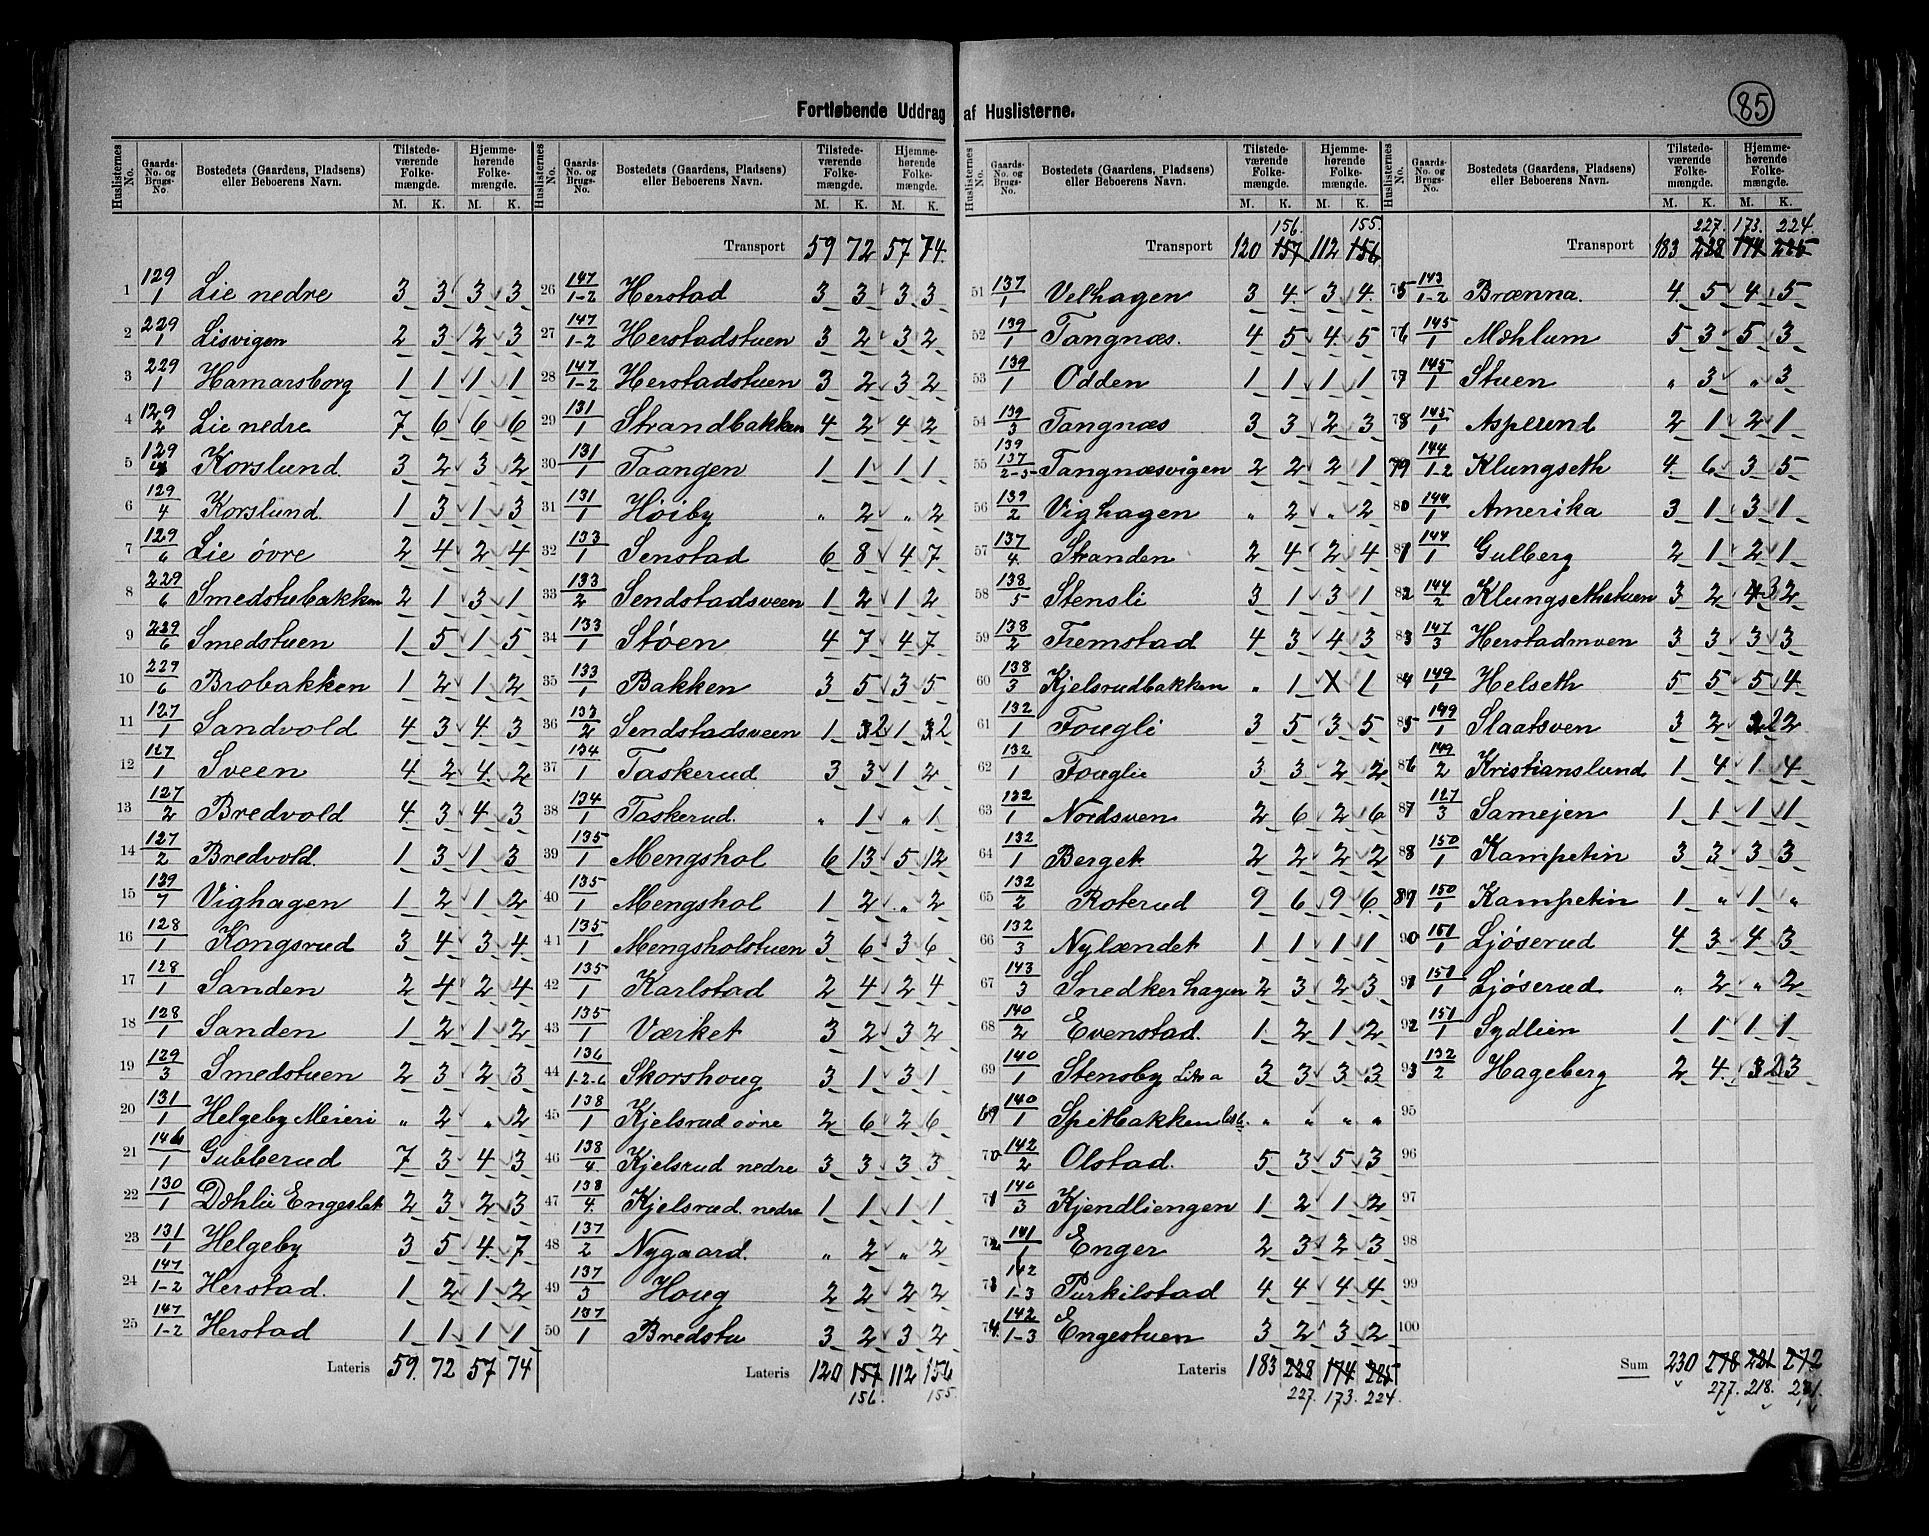 85
Fortløbende Uddrag af Huslisterne.
Huslisternes No. Gaards-No. og Brugs-No. Bostedets (Gaardens, Pladsens) eller Beboerens Navn. Tilstedeværende Folkemængde. M. K. Hjemmehørende Folkemængde. M. K.
1 129/1 Lie nedre 3 3 3 3
2 229/1 Lisvigen 2 3 2 3
3 229/1 Hamarsborg 1 1 1 1
4 129/2 Lie nedre 7 6 6 6
5 129/4 Korslund. 3 2 3 2
6 129/4 Korslund. 1 3 1 3
7 129/6 Lie øvre 2 4 2 4
8 229/6 Smedstubakken 2 1 3 1
9 239/6 Smedstuen 1 5 1 5
10 229/6 Brobakken 1 2 1 2
11 127/1 Sandvold 4 3 4 3
12 127/1 Sveen 4 2 4 2
13 127/2 Bredvold 4 3 4 3
14 127/2 Bredvold. 1 3 1 3
15 139/7 Vighagen 1 2 1 2
16 128/1 Kongsrud 3 4 3 4
17 128/1 Sanden 2 4 2 4
18 128/1 Sanden 1 2 1 2
19 129/3 Smedstuen 2 3 2 3
20 131/1 Helgeby Meieri " 2 " 2
21 146/1 Gubberud 7 3 4 3
22 130/1 Døhlie Engeslet 2 3 2 3
23 131/1 Helgeby 3 5 4 7
24 147/1-2 Herstad. 1 2 1 2
25 147/1-2 Herstad 1 1 1 1
Lateris 59. 72 57 74
Huslisternes No. Gaards-No. og Brugs-No. Bostedets (Gaardens, Pladsens) eller Beboerens Navn. Tilstedeværende Folkemængde. M. K. Hjemmehørende Folkemængde. M. K.
Transport 59 72 57 74.
26 147/1-2 Herstad 3 3 3 3
27 147/1-2 Herstadstuen 3 2 3 2
28 147/1-2 Herstadstuen 3 2 3 2
29 131/1 Strandbakken 4 2 4 2
30 131/1 Taangen 1 1 1 1
31 131/1 Høiby " 2 " 2
32 133/1 Senstad 6 8 4 7
33 133/2 Sendstadsveen 1 2 1 2
34 133/1 Støen 4 7 4 7
35 133/1 Bakken 3 5 3 5
36 133/2 Sendstadsveen 1 3 2 1 3 2
37 134/1 Taskerud 3 3 1 2
38 134/1 Taskerud. " 1 " 1
39 135/1 Mengshol 6 13 5 12
40 135/1 Mengshol 1 2 " 2
41 135/1 Mengsholstuen 3 6 3 6
42 135/1 Karlstad 2 4 2 4
43 135/1 Værket 3 2 3 2
44 136/1-2-6 Skorshoug 3 1 3 1
45 138/1 Kjelsrud øvre 2 6 2 6
46 138/4 Kjelsrud nedre 3 3 3 3
47 138/4. Kjelsrud nedre 1 1 1 1
48 137/2 Nygaard. " 2 " 2
49 137/3 Houg 2 2 2 2
50 137/1 Bredstu 3 2 3 2
Lateris 120 157 112 156
156. 155.
Huslisternes No. Gaards-No. og Brugs-No. Bostedets (Gaardens, Pladsens) eller Beboerens Navn. Tilstedeværende Folkemængde. M. K. Hjemmehørende Folkemængde. M. K.
156. 155.
Transport 120 157 112 156
51 137/1 Velhagen 3 4 3 4
52 139/1 Tangnæs. 4 5 4 5
53 139/1 Odden 1 1 1 1
54 139/3 Tangnæs 3 3 2 3
55 139 137/2-5 Tangnæsvigen 2 2 2 1
56 139/2 Vighagen " 2 " 2
57 137/4 Stranden 2 4 2 4
58 138/5 Stensli 3 1 3 1
59 138/2 Fremstad 4 3 4 3
60 138/3 Kjelsrudbakken " 1 X 1
61 132/1 Fougli 3 5 3 5
62 132/1 Fouglie 3 3 2 2
63 132/1 Nordsven 2 6 2 6
64 132/1 Berget 2 2 2 2
65 132/2 Roterud 9 6 9 6
66 132/3 Nylændet 1 1 1 1
67 143/3 Snedkerhagen 2 3 2 3
68 140/2 Evenstad. 1 2 1 2
69 140/1 Stensby Litr a 3 3 3 3
69 140/1 Spitbakken " " " "
70 142/2 Olstad. 5 3 5 3
71 140/3 Kjendliengen 1 2 1 2
72 141/1 Enger 2 3 2 3
73 142/1-3 Turkilstad 4 4 4 4
74. 142/1-3 Engestuen 3 2 3 2
Lateris 183 228 174 225
227. 173. 224.
Huslisternes No. Gaards-No. og Brugs-No. Bostedets (Gaardens, Pladsens) eller Beboerens Navn. Tilstedeværende Folkemængde. M. K. Hjemmehørende Folkemængde. M. K.
227. 173. 224.
Transport 183 228 174 225
75 143/1-2 Brænna. 4 5 4 5
76 145/1 Mæhlum 5 3 5 3
77 145/1 Stuen " 3 " 3
78 145/1 Asperund 2 1 2 1
79 144/1-2 Klungseth 4 6 3 5
80 144/1 Amerika 3 1 3 1
81 144/1 Gulberg 2 1 2 1
82 144/2 Klungsethstuen 3 2 4 3 2
83 147/3 Herstadmoen 3 3 3 3
84 149/1 Helseth 5 5 5 4
85 149/1 Slaatsven 3 2 3 2 2
86 149/2 Kristianslund 1 4 1 4
87 127/3 Samejen 1 1 1 1
88 150/1 Kampetin 3 3 3 3
89 150/1 Kampetin 1 " 1 "
90 151/1 Ljøserud 4 3 4 3
91 151/1 Ljøserud " 2 " 2
92 151/1 Sydlien 1 1 1 1
93 132/2 Hageberg 2 4 3 2 3
95
96
97
98
99
100
Sum 230 278 221 272
277. 218. 271.